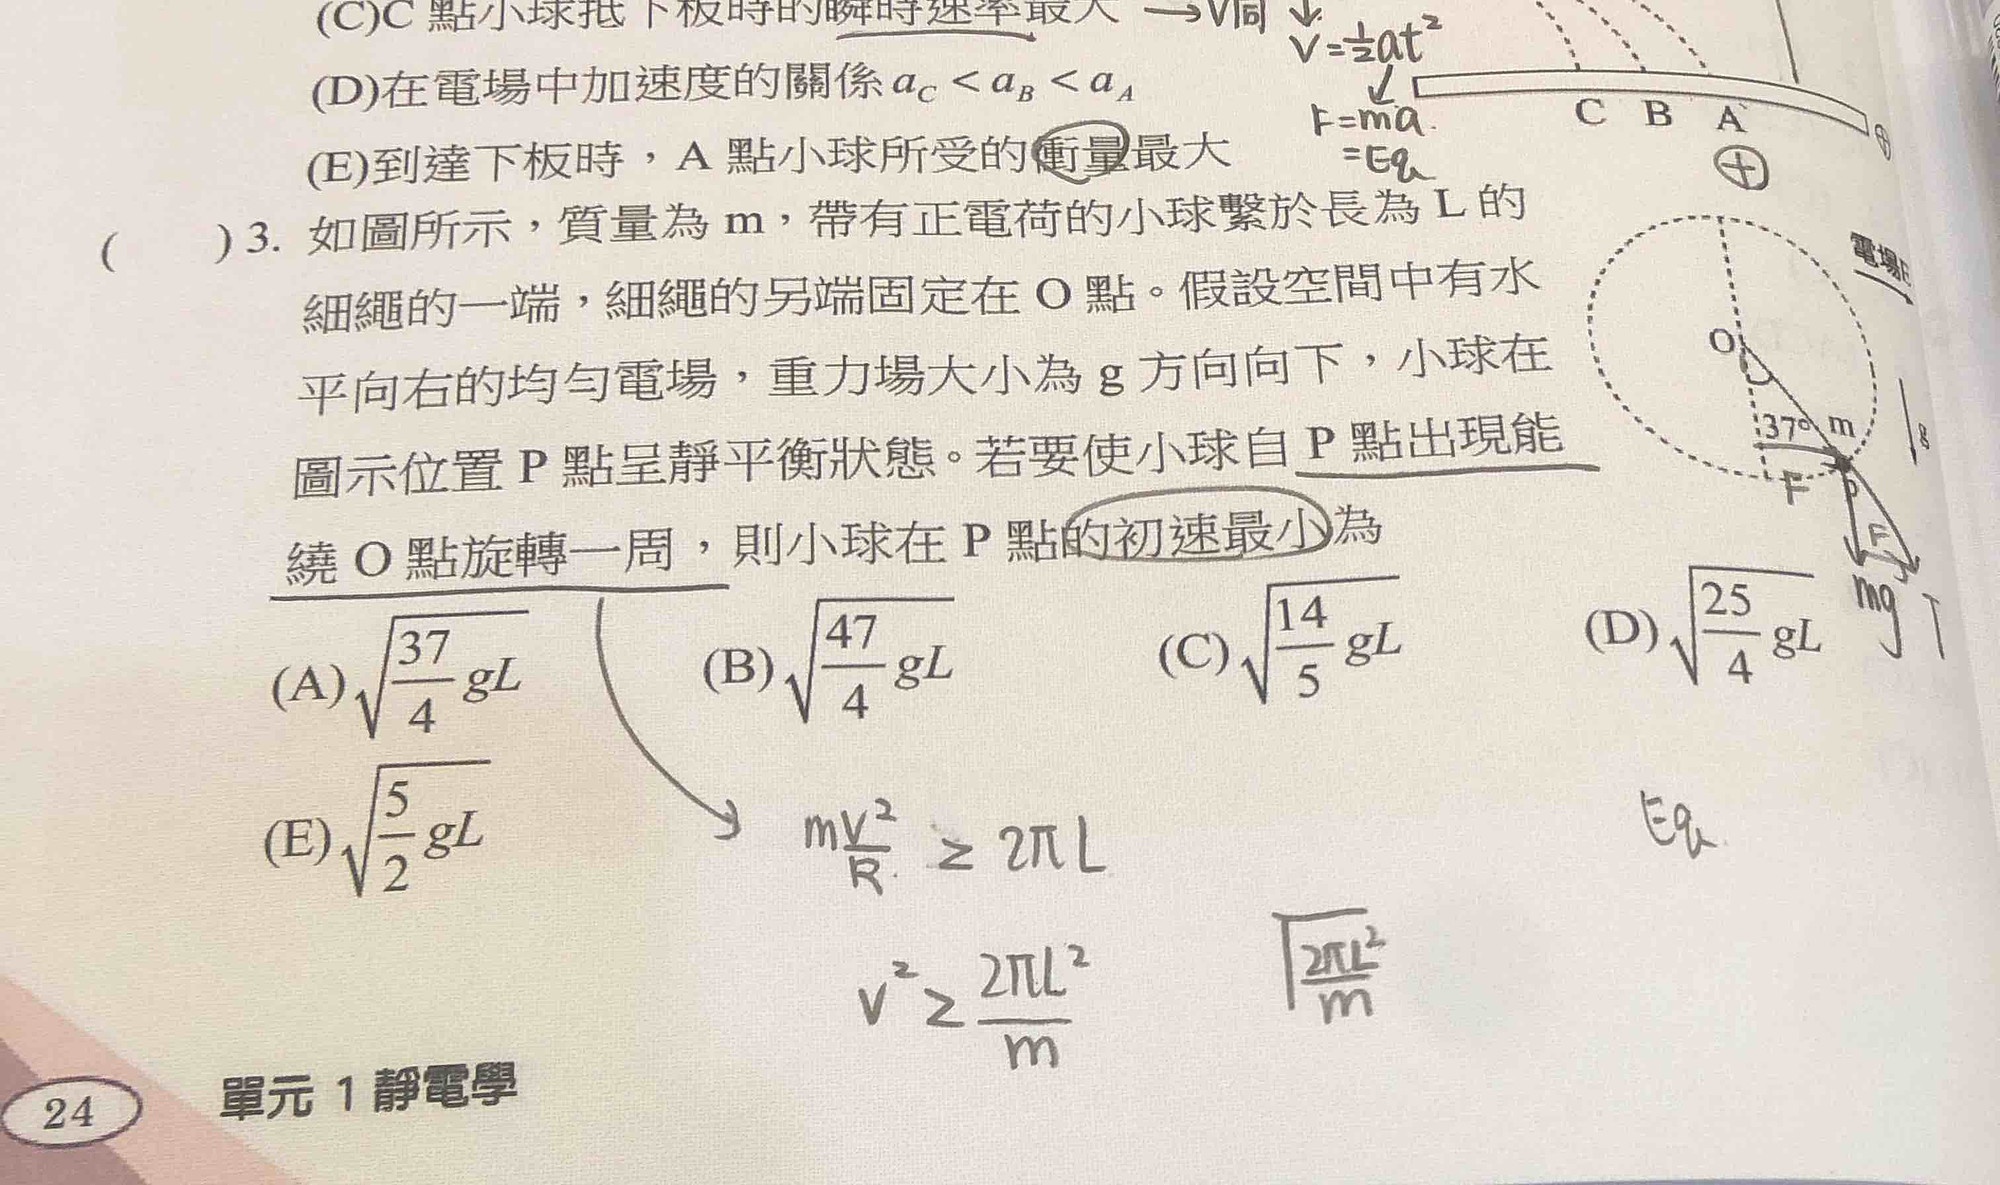 (C)C 點小球抵下板時的瞬時速率最大 →V同
V=½at²
(D)在電場中加速度的關係 a_C < a_B < a_A
F=ma.
=Eq
(E)到達下板時，A 點小球所受的衝量最大
C B A
⊕
( ) 3. 如圖所示，質量為 m，帶有正電荷的小球繫於長為 L 的
細繩的一端，細繩的另端固定在 O 點。假設空間中有水
平向右的均勻電場，重力場大小為 g 方向向下，小球在
圖示位置 P 點呈靜平衡狀態。若要使小球自 P 點出現能
繞 O 點旋轉一周，則小球在 P 點的初速最小為
電場E
O
37° m
g
F
P
F
mg
(A)√(37/4 gL) (B)√(47/4 gL) (C)√(14/5 gL) (D)√(25/4 gL)
(E)√(5/2 gL)
mV²/R. ≥ 2πL
Eq
V² ≥ 2πL²/m
√(2πL²/m)
24 單元 1 靜電學